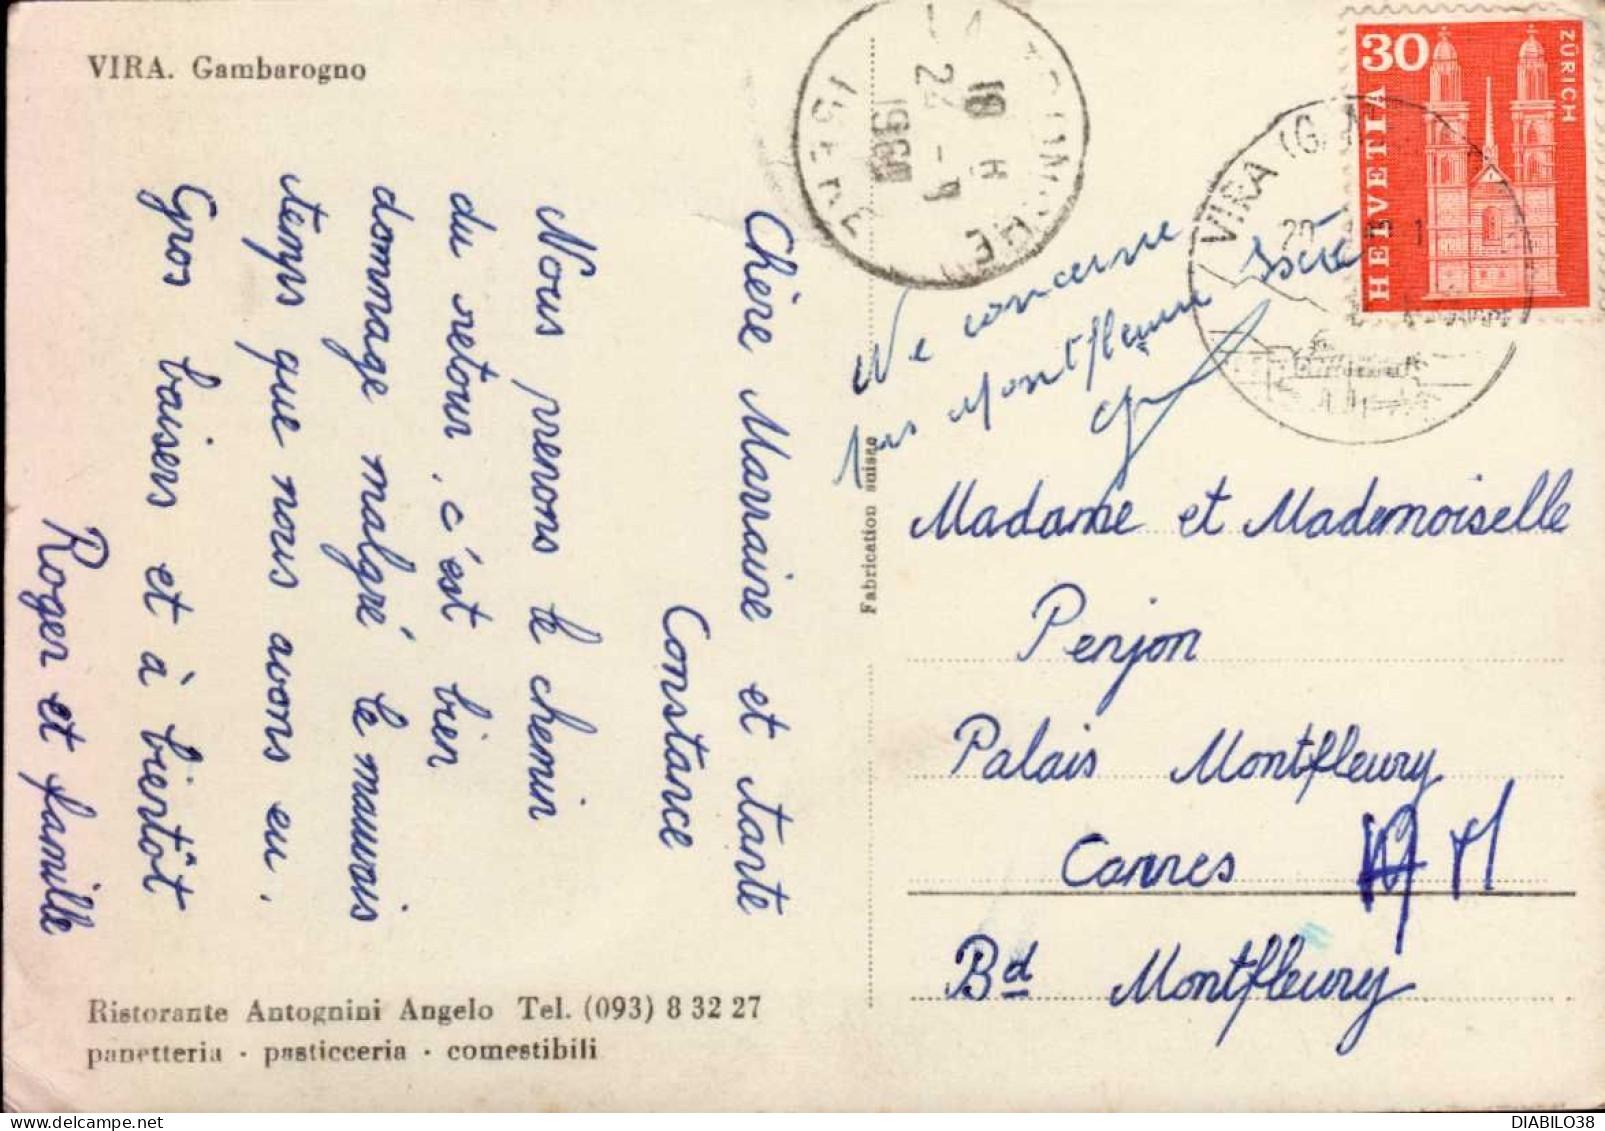 VIRA. Gambarogno
Chère Marraine et tante
Constance
Nous prenons le chemin
du retour, c'est bien
dommage malgré le mauvais
temps que nous avons eu.
Gros baisers et à bientôt
Roger et famille
Ristorante Antognini Angelo Tel. (093) 8 32 27
panetteria · pasticceria · comestibili
Fabrication suisse
ISERE
18 H
1960
30
HELVETIA
ZÜRICH
VIRA
Ne concerne
pas Montfleury
Isère
Madame et Mademoiselle
Penjon
Palais Montfleury
Cannes
Bd Montfleury
DIABILO38